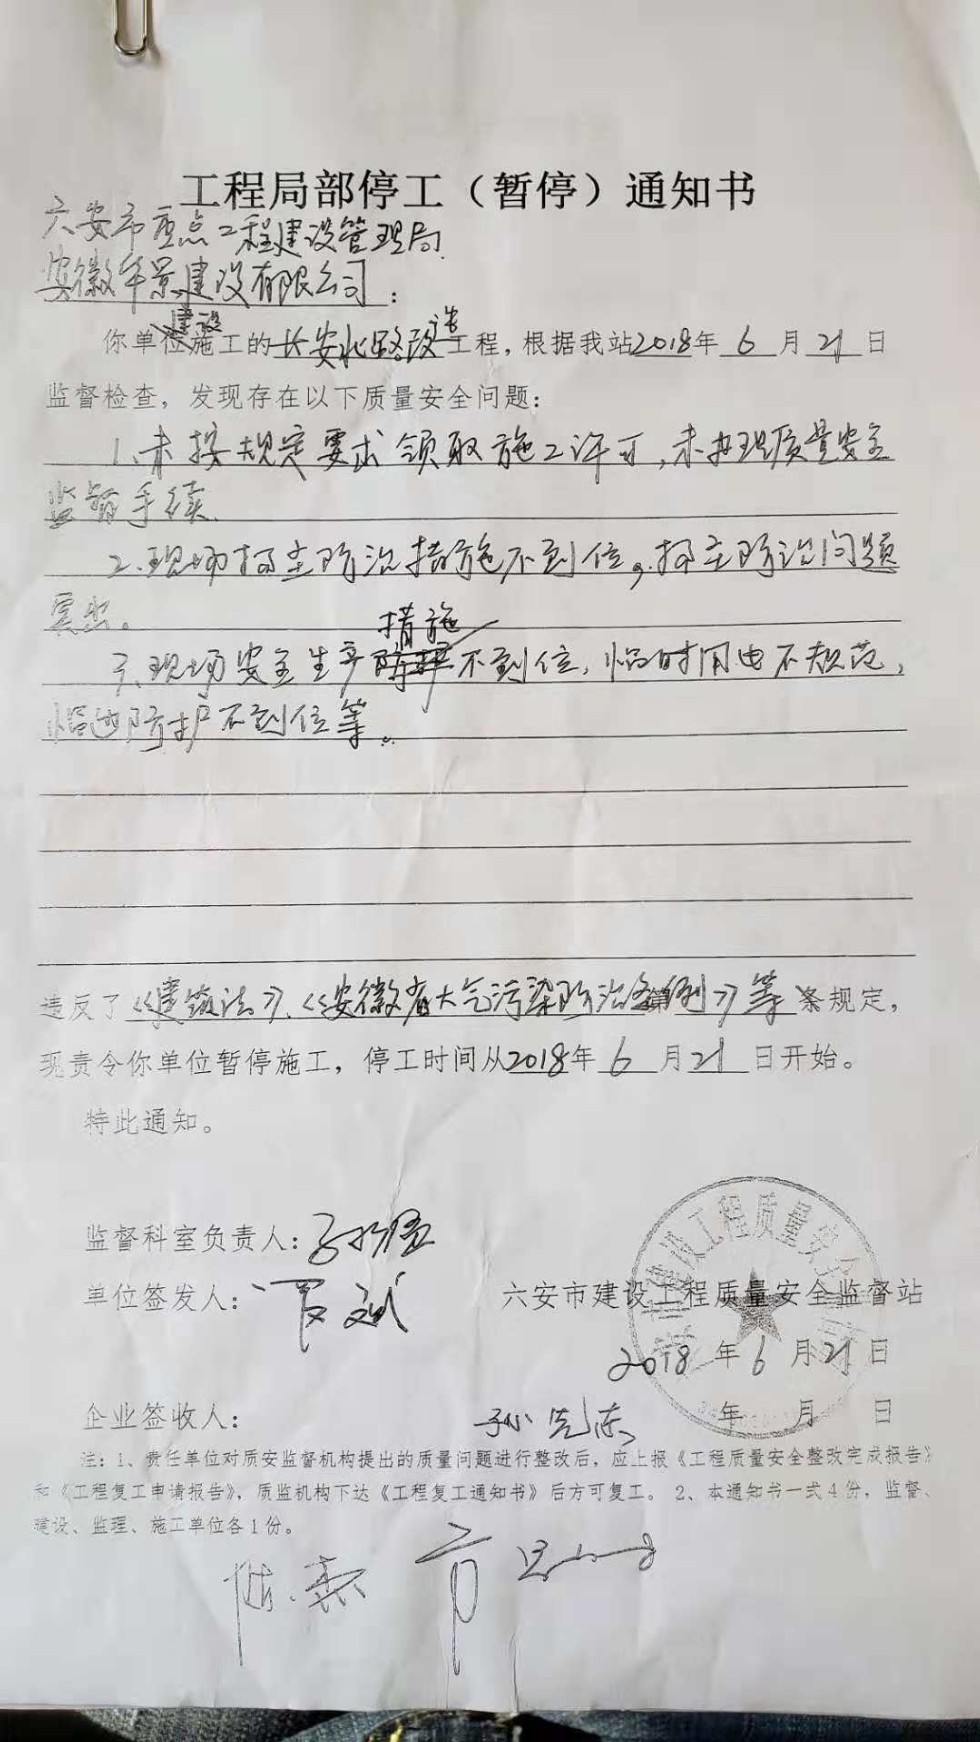 工程局部停工（暂停）通知书
六安市重点工程建设管理局
安徽华景建设有限公司：
建设 造
你单位施工的长安北路改工程，根据我站2018年6月21日
监督检查，发现存在以下质量安全问题：
1、未按规定要求领取施工许可，未办理质量安全
监督手续。
2、现场扬尘防治措施不到位，扬尘防治问题
突出。
措施
3、现场安全生产不到位，临时用电不规范，
临边防护不到位等。
违反了《建筑法》、《安徽省大气污染防治条例》等条规定，
现责令你单位暂停施工，停工时间从2018年6月21日开始。
特此通知。
监督科室负责人：
单位签发人：
六安市建设工程质量安全监督站
2018年6月21日
企业签收人： 孙先东 年 月 日
注：1、责任单位对质安监督机构提出的质量问题进行整改后，应上报《工程质量安全整改完成报告》
和《工程复工申请报告》，质监机构下达《工程复工通知书》后方可复工。2、本通知书一式4份，监督、
建设、监理、施工单位各1份。